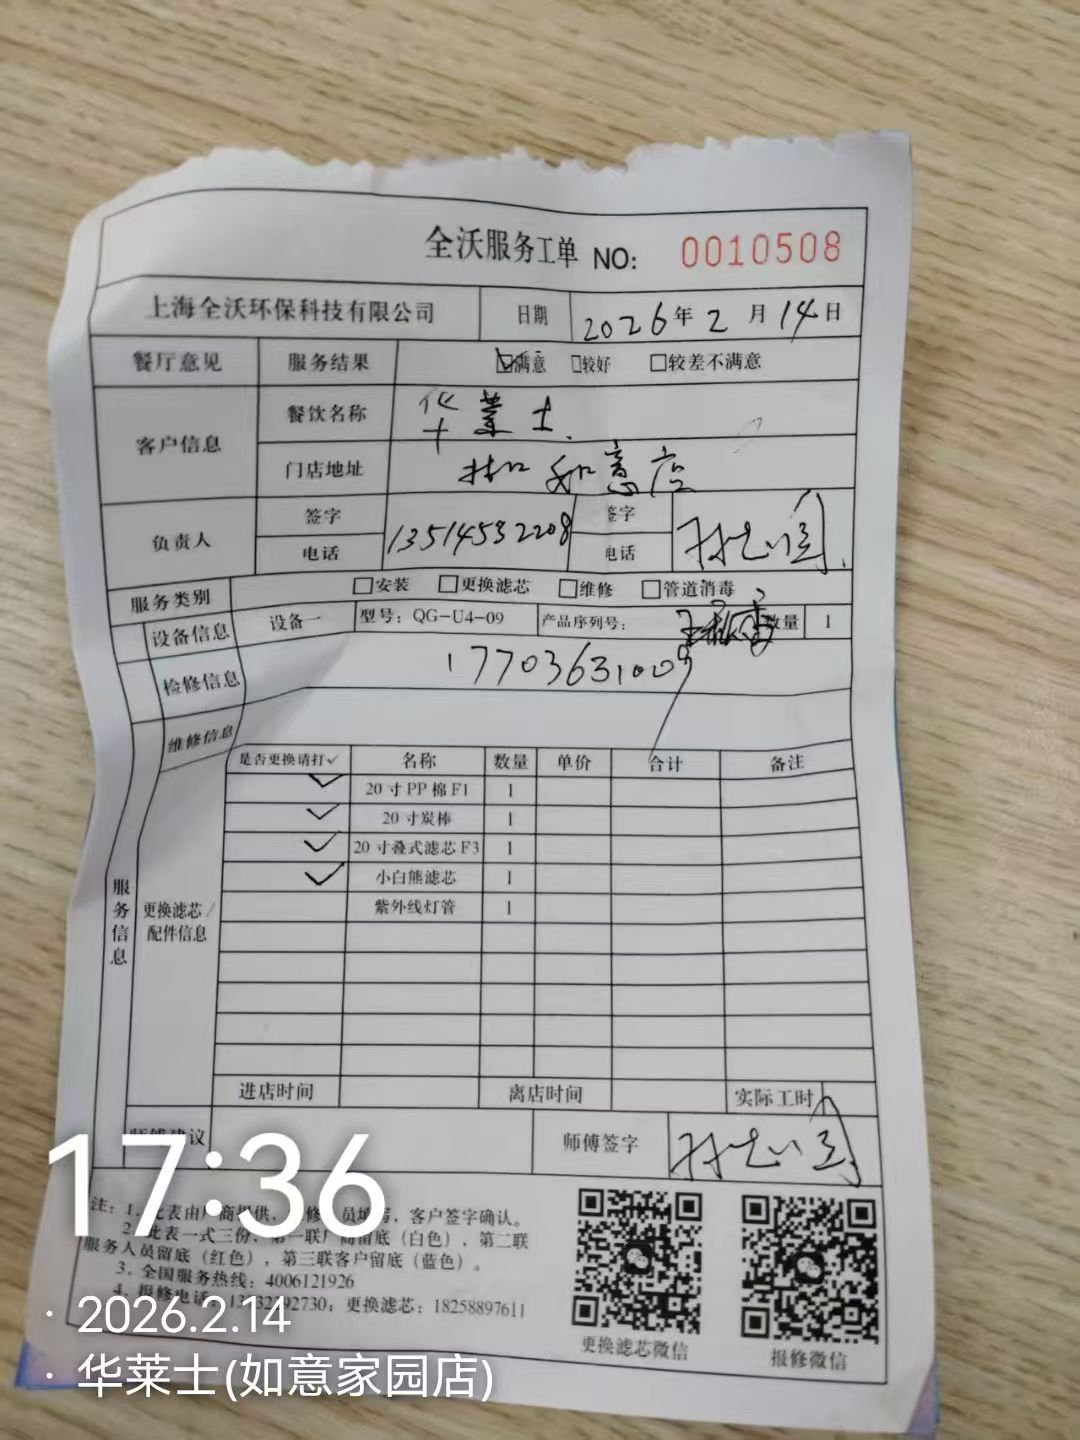 全沃服务工单 NO: 0010508
上海全沃环保科技有限公司 日期 2026年2月14日
餐厅意见 服务结果 ☑满意 □较好 □较差不满意
客户信息 餐饮名称 华莱士
门店地址 如意店
负责人 签字 电话 13514532208 签字 电话
服务类别 □安装 □更换滤芯 □维修 □管道消毒
设备信息 设备一 型号：QG-U4-09 产品序列号： 数量 1
检修信息 17703631009
维修信息
服务信息
更换滤芯/配件信息
是否更换请打✓ 名称 数量 单价 合计 备注
✓ 20寸PP棉F1 1
✓ 20寸炭棒 1
✓ 20寸叠式滤芯F3 1
✓ 小白熊滤芯 1
紫外线灯管 1
进店时间 离店时间 实际工时
师傅建议 师傅签字
17:36
注：1，此表由厂商提供，维修人员填写，客户签字确认。
2，此表一式三份，第一联厂商留底（白色），第二联
服务人员留底（红色），第三联客户留底（蓝色）。
3、全国服务热线：4006121926
4、报修电话： 更换滤芯：18258897611
更换滤芯微信 报修微信
· 2026.2.14
· 华莱士(如意家园店)